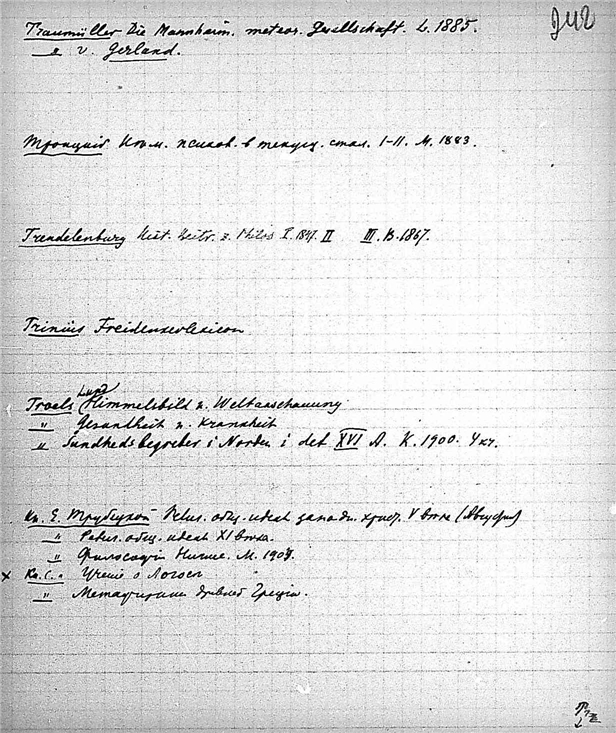 242
Traumüller Die Mannheim. meteor. Gesellschaft. L. 1885.
" v. Gerland.
Троицкій Нѣм. психол. в текущ. стол. I-II. М. 1883.
Trendelenburg Hist. Beitr. z. Philos I. 1847. II III. B. 1867.
Trinius Freidenkerlexicon
Troels Lund Himmelsbild u. Weltanschauung
" Gesundheit u. Krankheit
" Sundhedsbegreber i Norden i det XVI A. K. 1900. 4 кr.
Кн. Е. Трубецкой Религ. общ. идеал западн. христ. V вѣка (Августин)
" Религ. общ. идеал XI вѣка.
" Философія Ницше. М. 1904.
x Кн. С. " Ученіе о Логосѣ
" Метафизика древней Греціи.